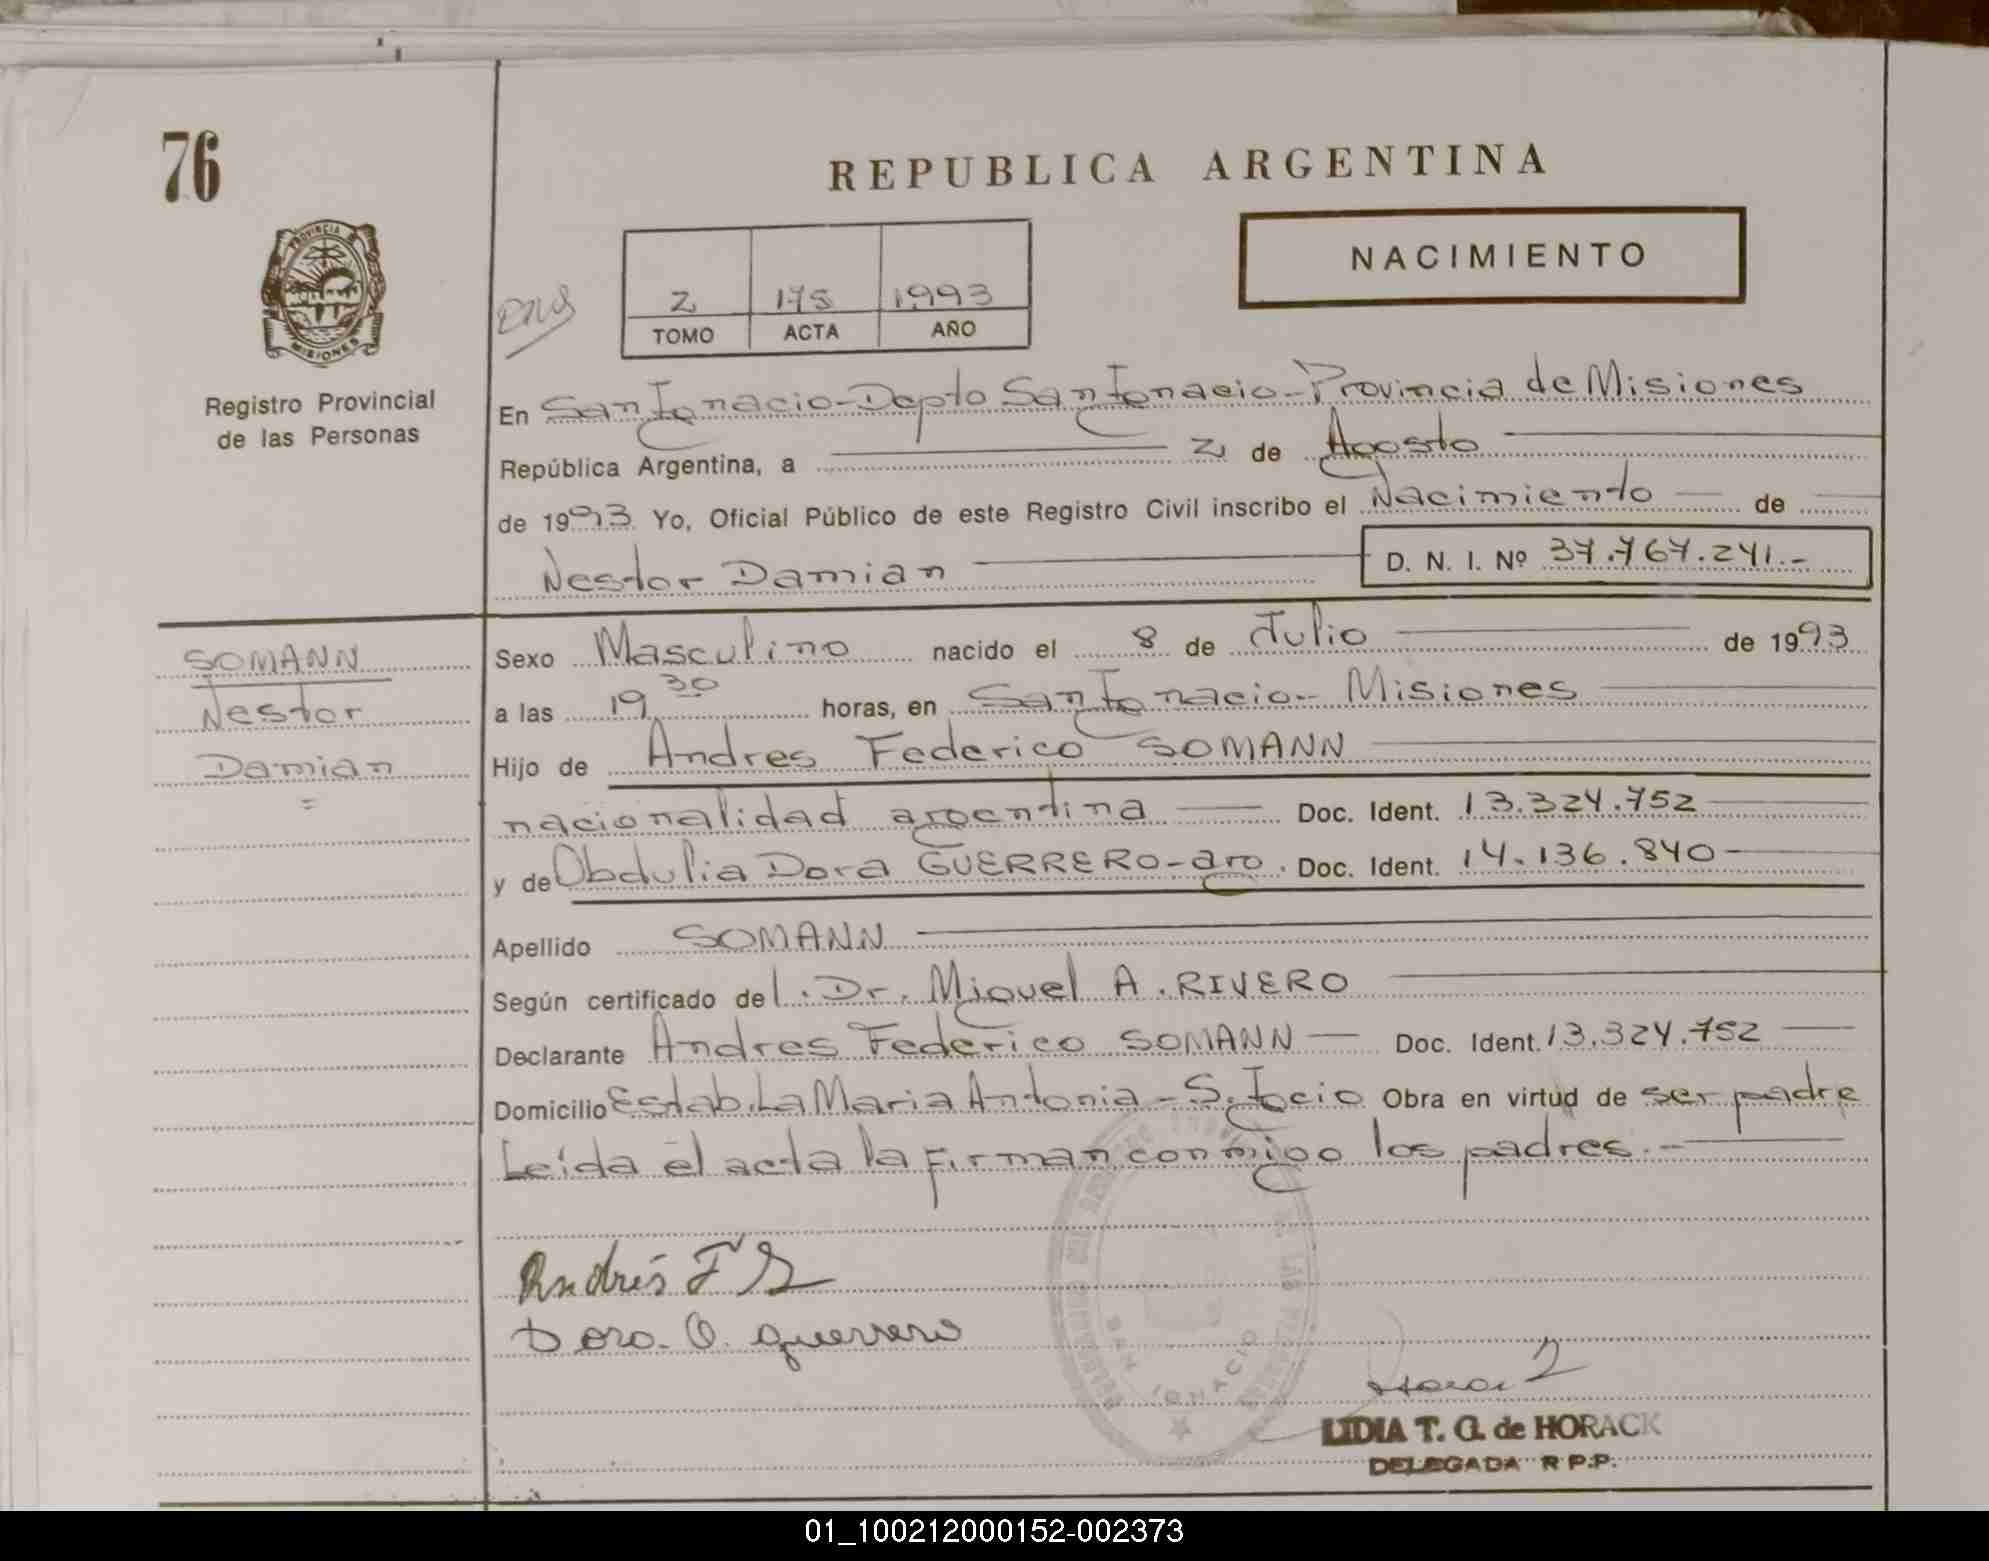 76
REPUBLICA ARGENTINA
NACIMIENTO
PROVINCIA
MISIONES
Registro Provincial
de las Personas
2 175 1993
TOMO ACTA AÑO
En San Ignacio-Depto San Ignacio-Provincia de Misiones
República Argentina, a 2 de Agosto
de 1993 Yo, Oficial Público de este Registro Civil inscribo el Nacimiento de
Nestor Damian D. N. I. Nº 37.767.241.-
SOMANN
Nestor
Damian
=
Sexo Masculino nacido el 8 de Julio de 1993
a las 19 30 horas, en San Ignacio-Misiones
Hijo de Andres Federico SOMANN
nacionalidad argentina Doc. Ident. 13.324.752
y de Obdulia Dora GUERRERO-arg. Doc. Ident. 14.136.840-
Apellido SOMANN
Según certificado del. Dr. Miguel A. RIVERO
Declarante Andres Federico SOMANN Doc. Ident. 13.324.752
Domicilio Estab. La Maria Antonia - S. Igcio Obra en virtud de ser padre
Leída el acta la firman conmigo los padres.-
Andrés F S
Dora. O. guerrero
SAN IGNACIO
LIDIA T. G. de HORACK
DELEGADA R P.P.
01_100212000152-002373